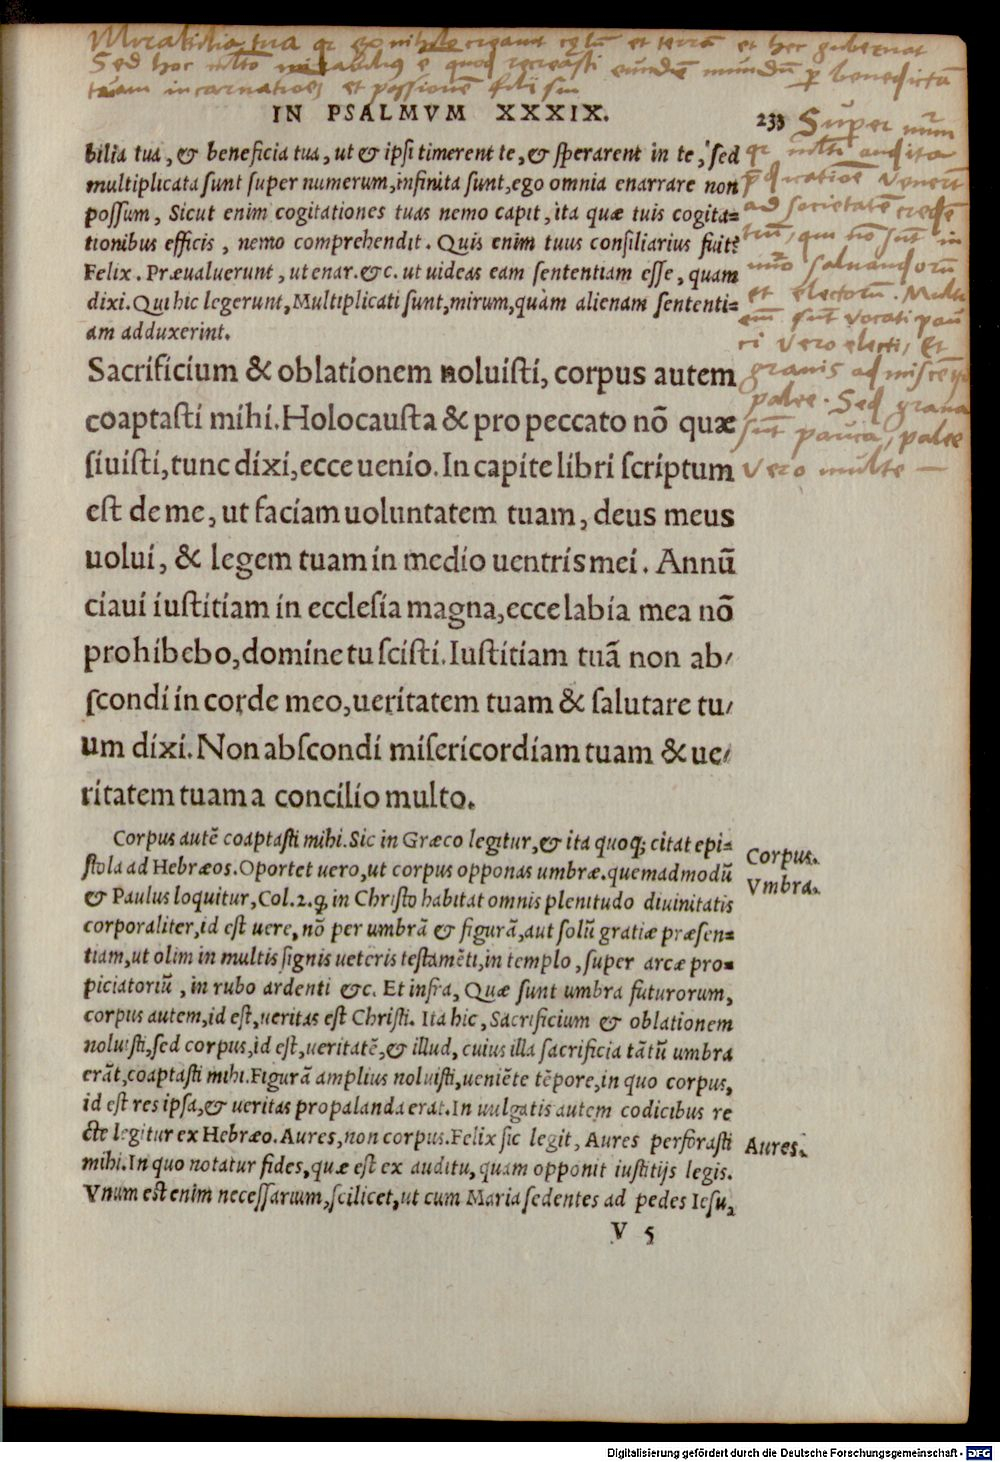 Mirabilia tua qr ex nihilo creavit celū et terrā et hec gubernat
Sed hoc mlto mirabilius e quod recreasti eundē mundū p benedictā
tuam incarnatioēs et passionē filii sui
IN PSALMVM XXXIX. 233
bilia tua, & beneficia tua, ut & ipsi timerent te, & sperarent in te, sed
multiplicata sunt super numerum, infinita sunt, ego omnia enarrare non
possum, Sicut enim cogitationes tuas nemo capit, ita quæ tuis cogita=
tionibus efficis, nemo comprehendit. Quis enim tuus consiliarius fuit?
Felix. Præualuerunt, ut enar. &c. ut uideas eam sententiam esse, quam
dixi. Qui hic legerunt, Multiplicati sunt, mirum, quàm alienam sententi=
am adduxerint.
Super num
qr mlti audita
p̄dicatiōe venerūt
ad societatē credē
tiū, qui nō sūt in
nūo saluandorū
et electorū. Multi
eni sūt vocati pau
ci vero electi, Et
granis admiscent
palee. Sed grana
sūt pauca, palee
vero multe —
Sacrificium & oblationem noluisti, corpus autem
coaptasti mihi. Holocausta & pro peccato nō quæ
siuisti, tunc dixi, ecce uenio. In capite libri scriptum
est de me, ut faciam uoluntatem tuam, deus meus
uolui, & legem tuam in medio uentris mei. Annū
ciaui iustitiam in ecclesia magna, ecce labia mea nō
prohibebo, domine tu scisti. Iustitiam tuā non ab/
scondi in corde meo, ueritatem tuam & salutare tu/
um dixi. Non abscondi misericordiam tuam & ue/
ritatem tuam a concilio multo.
Corpus autē coaptasti mihi. Sic in Græco legitur, & ita quoq; citat epi=
stola ad Hebræos. Oportet uero, ut corpus opponas umbræ. quemadmodū
& Paulus loquitur, Col. 2. q̨ in Christo habitat omnis plenitudo diuinitatis
corporaliter, id est uere, nō per umbrā & figurā, aut solū gratiæ præsen=
tiam, ut olim in multis signis ueteris testamēti, in templo, super arcæ pro=
piciatoriū, in rubo ardenti &c. Et infra, Quæ sunt umbra futurorum,
corpus autem, id est, ueritas est Christi. Ita hic, Sacrificium & oblationem
noluisti, sed corpus, id est, ueritatē, & illud, cuius illa sacrificia tātū umbra
erāt, coaptasti mihi. Figurā amplius noluisti, ueniēte tēpore, in quo corpus,
id est res ipsa, & ueritas propalanda erat. In uulgatis autem codicibus re
cte legitur ex Hebræo. Aures, non corpus. Felix sic legit, Aures perforasti
mihi. In quo notatur fides, quæ est ex auditu, quam opponit iustitijs legis.
Vnum est enim necessarium, scilicet, ut cum Maria sedentes ad pedes Iesu,
Corpus.
Vmbra.
Aures.
V 5
Digitalisierung gefördert durch die Deutsche Forschungsgemeinschaft - DFG